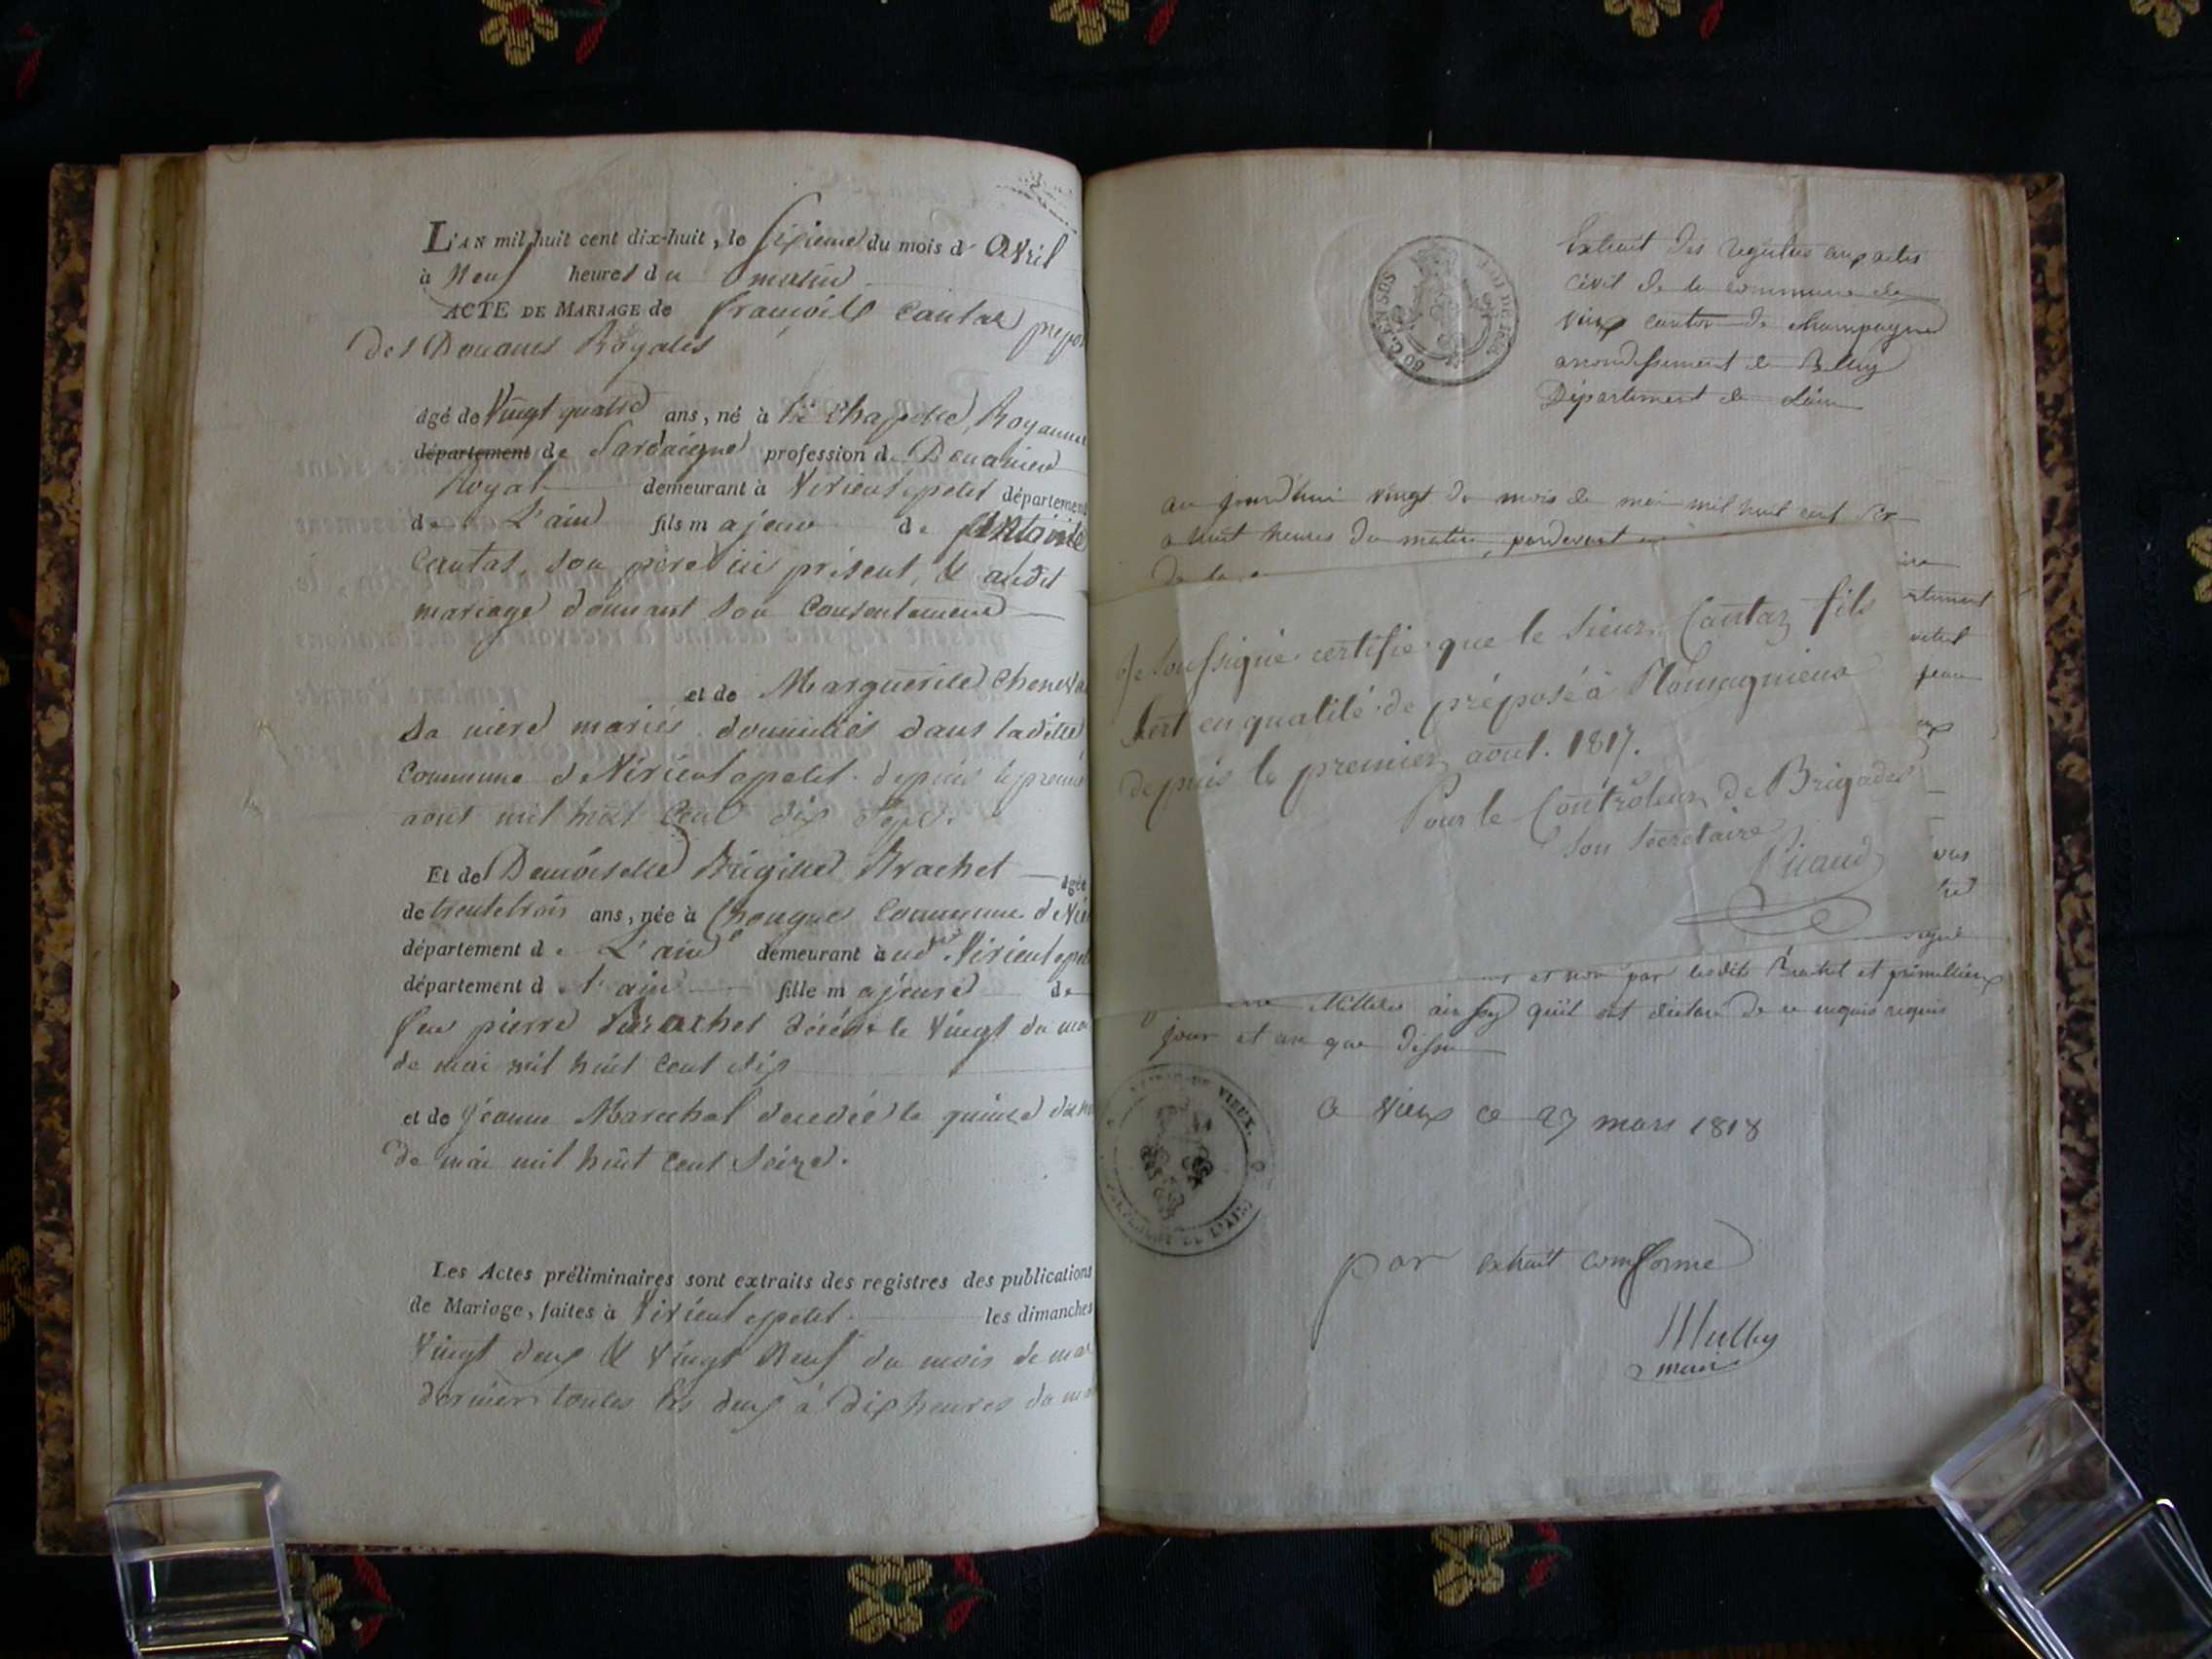 L'AN mil huit cent dix-huit, le sixieme du mois d' avril
à neuf heures du matin
ACTE DE MARIAGE de françois Cantas prépo
des Douanes Royales
âgé de vingt quatre ans, né à la Chapelle, Royaume
département de Sardaigne profession de Douanier
Royal demeurant à Virieu le petit département
de L'ain fils majeur de antoine
Cantas, son père ici présent, & audit
mariage donnant son consentement
et de Marguerite Cheneva
sa mère mariés domiciliés dans ladite
Commune de Virieu le petit depuis le premier
aout mil huit cent dix sept.
Et de Demoiselle Brigitte Brachet âgée
de trente trois ans, née à Chongnes Commune de
département de L'ain demeurant à Virieu le petit
département de l'ain fille majeure de
feu pierre Brachet décédé le vingt du mois
de mai mil huit cent dix
et de jeanne Marechal decedée le quinze du
de mai mil huit cent seize.
Les Actes préliminaires sont extraits des registres des publications
de Mariage, faites à Virieu le petit les dimanches
vingt deux & vingt neuf du mois de mar
dernier toutes les deux à dix heures du ma
60 C. EN SUS
Extrait des registres aux actes
civil de la commune de
vieux canton de champagne
arrondissement de Belley
Département de L'ain
au jourd'hui vingt du mois de mai mil huit cent
a huit heures du matin, pardevant
de la
Je soussigné certifie que le sieur Cantaz fils
sert en qualité de préposé à Romagnieux
depuis le premier aout. 1817.
Pour le Contrôleur de Brigades
son secretaire
et non par lesdits Brachet et
ainsy qu'il ont déclaré de ce enquis requis
jour et an que dessus
a vieux ce 27 mars 1818
par extrait conforme
maire